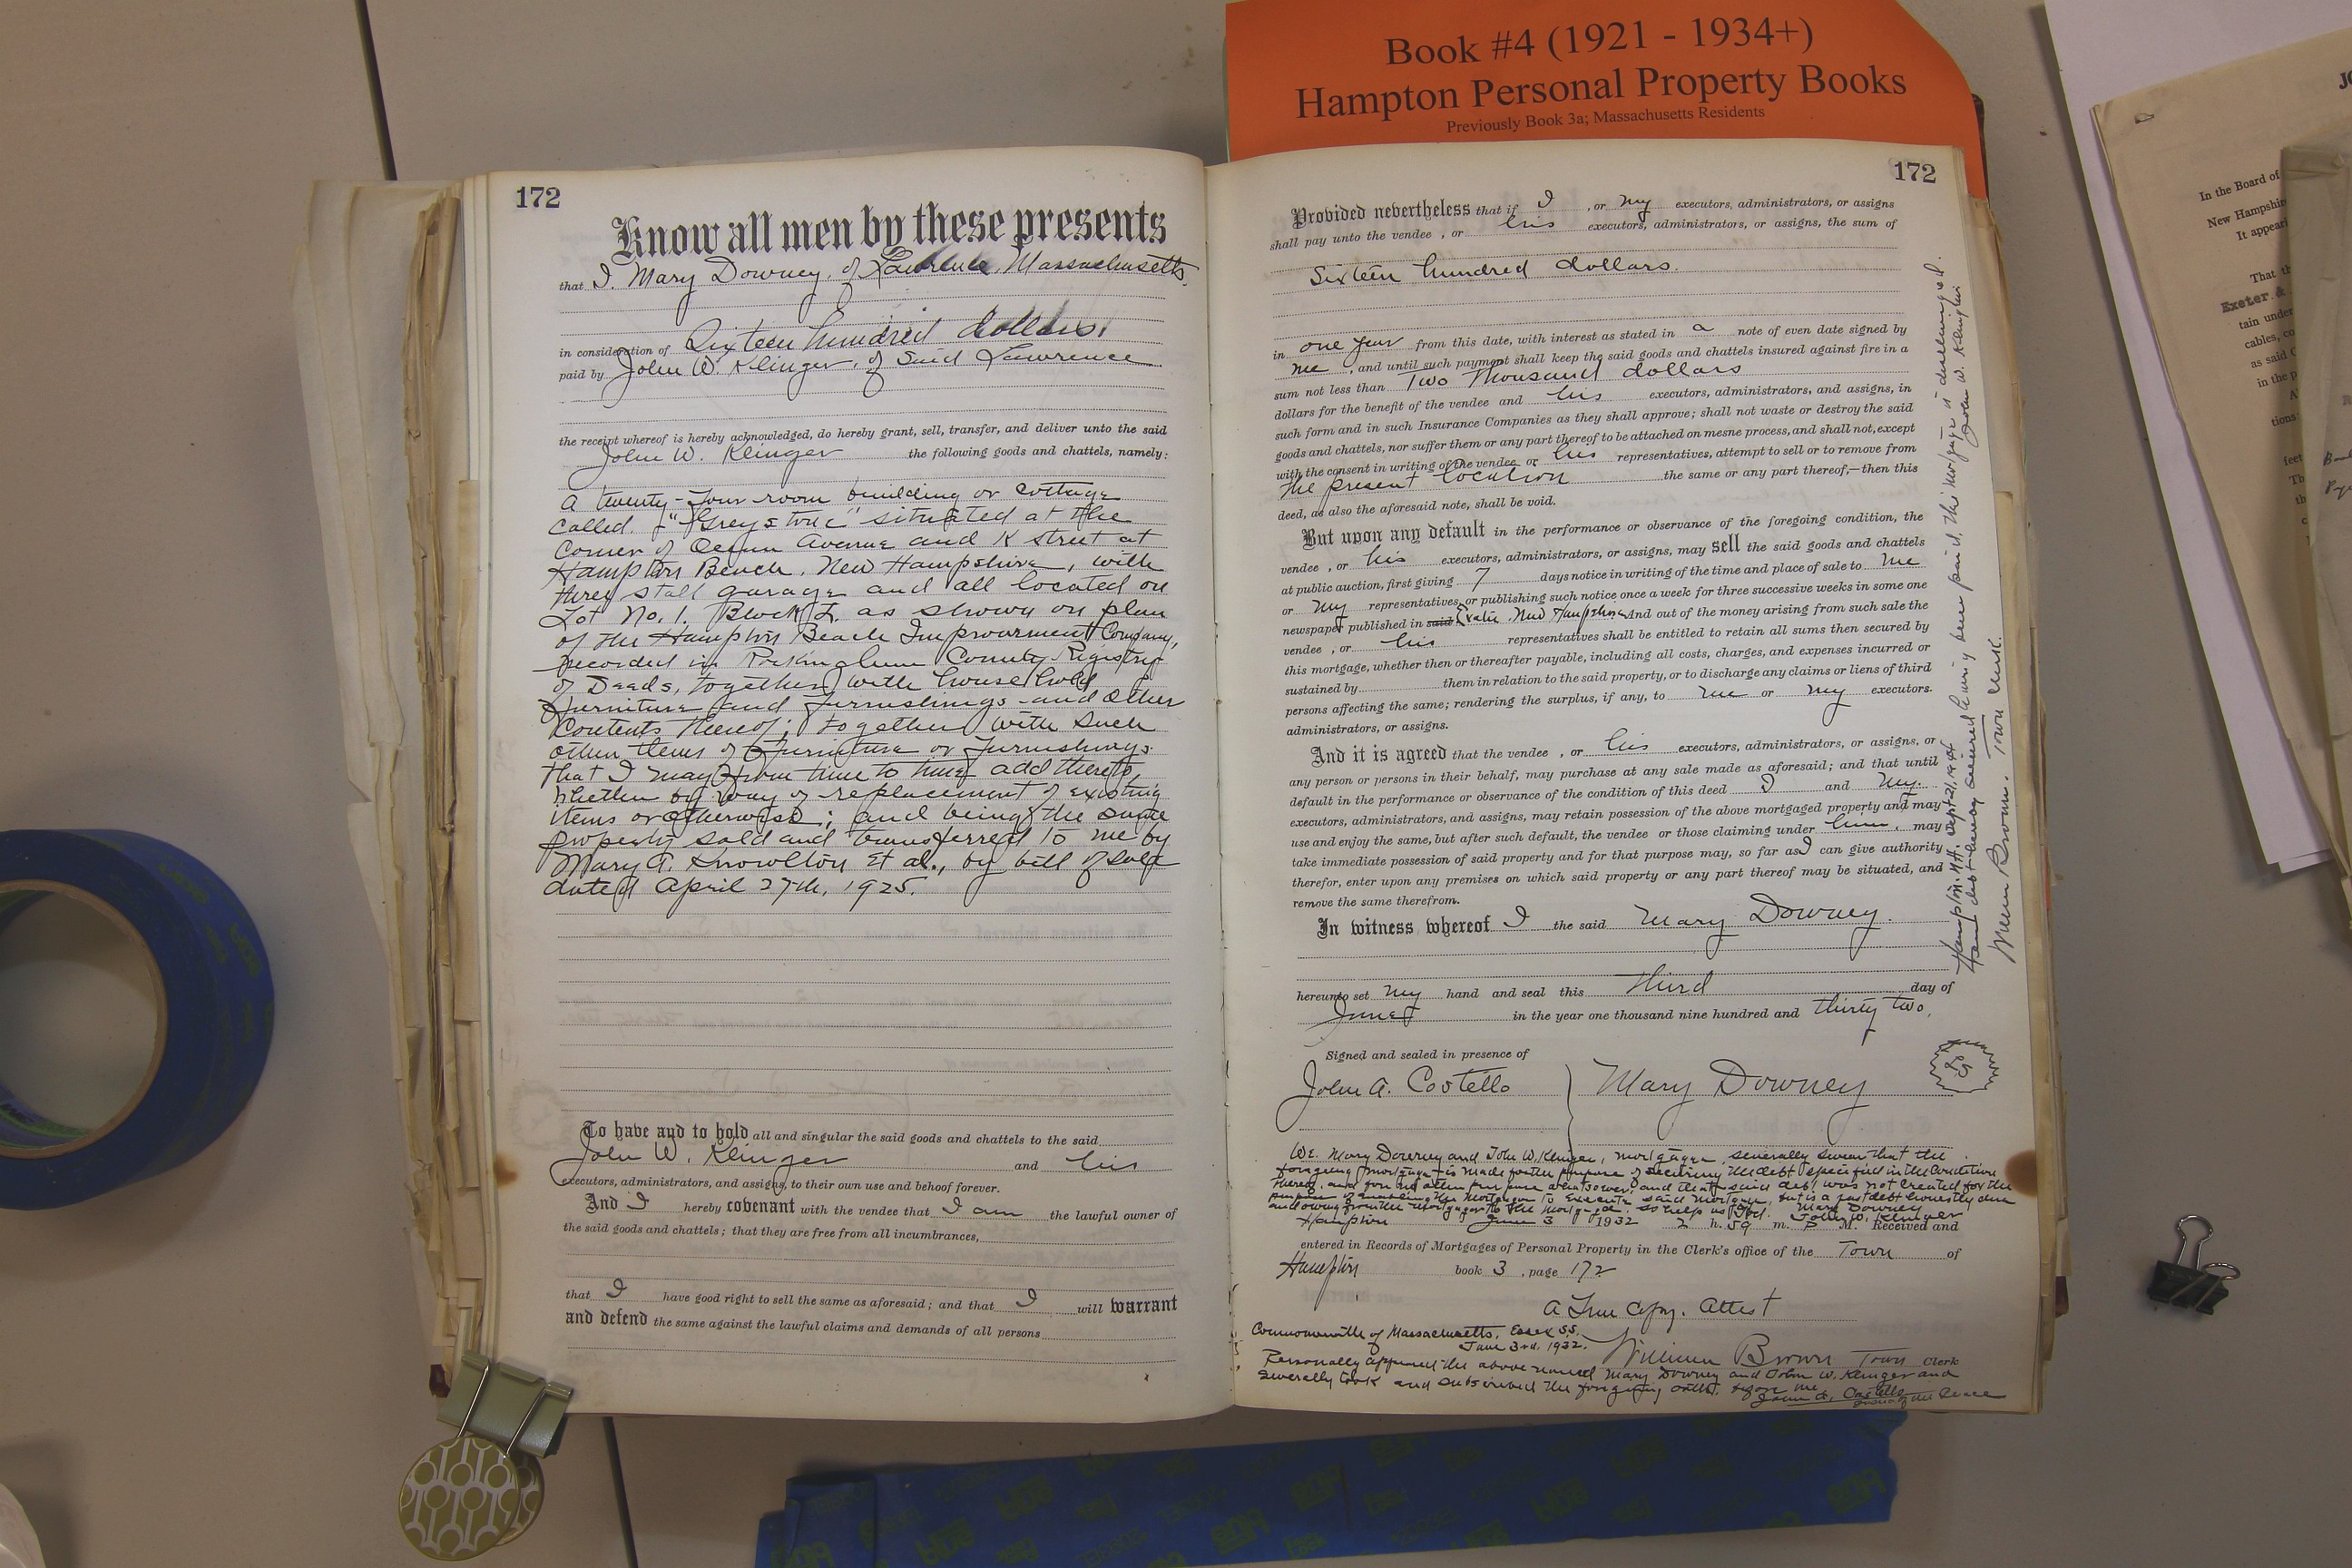 Book #4 (1921 - 1934+)
Hampton Personal Property Books
Previously Book 3a; Massachusetts Residents
172
Know all men by these presents
that I, Mary Downey, of Lawrence, Massachusetts,
in consideration of Sixteen hundred dollars,
paid by John W. Klinger, of said Lawrence
the receipt whereof is hereby acknowledged, do hereby grant, sell, transfer, and deliver unto the said
John W. Klinger the following goods and chattels, namely:
A twenty-four room building or cottage
called "Greystone" situated at the
corner of Ocean Avenue and K street at
Hampton Beach, New Hampshire, with
three stall garage and all located on
Lot No. 1. Block L. as shown on plan
of the Hampton Beach Improvement Company,
recorded in Rockingham County Registry
of Deeds, together with household
furniture and furnishings and other
contents thereof; together with such
other items of furniture or furnishings
that I may from time to time add thereto,
whether by way of replacement of existing
items or otherwise; and being the same
property sold and transferred to me by
Mary A. Knowlton et al., by bill of sale
dated April 27th, 1925.
To have and to hold all and singular the said goods and chattels to the said
John W. Klinger and his
executors, administrators, and assigns, to their own use and behoof forever.
And I hereby covenant with the vendee that I am the lawful owner of
the said goods and chattels; that they are free from all incumbrances,
that I have good right to sell the same as aforesaid; and that I will warrant
and defend the same against the lawful claims and demands of all persons
172
Provided nevertheless that if I , or my executors, administrators, or assigns
shall pay unto the vendee , or his executors, administrators, or assigns, the sum of
Sixteen hundred dollars.
in one year from this date, with interest as stated in a note of even date signed by
me , and until such payment shall keep the said goods and chattels insured against fire in a
sum not less than Two Thousand dollars
dollars for the benefit of the vendee and his executors, administrators, and assigns, in
such form and in such Insurance Companies as they shall approve; shall not waste or destroy the said
goods and chattels, nor suffer them or any part thereof to be attached on mesne process, and shall not, except
with the consent in writing of the vendee or his representatives, attempt to sell or to remove from
the present location the same or any part thereof,—then this
deed, as also the aforesaid note, shall be void.
But upon any default in the performance or observance of the foregoing condition, the
vendee , or his executors, administrators, or assigns, may sell the said goods and chattels
at public auction, first giving 7 days notice in writing of the time and place of sale to me
or my representatives, or publishing such notice once a week for three successive weeks in some one
newspaper published in said Exeter, New Hampshire And out of the money arising from such sale the
vendee , or his representatives shall be entitled to retain all sums then secured by
this mortgage, whether then or thereafter payable, including all costs, charges, and expenses incurred or
sustained by them in relation to the said property, or to discharge any claims or liens of third
persons affecting the same; rendering the surplus, if any, to me or my executors.
administrators, or assigns.
And it is agreed that the vendee , or his executors, administrators, or assigns, or
any person or persons in their behalf, may purchase at any sale made as aforesaid; and that until
default in the performance or observance of the condition of this deed I and my
executors, administrators, and assigns, may retain possession of the above mortgaged property and may
use and enjoy the same, but after such default, the vendee or those claiming under him, may
take immediate possession of said property and for that purpose may, so far as I can give authority
therefor, enter upon any premises on which said property or any part thereof may be situated, and
remove the same therefrom.
In witness whereof I the said Mary Downey.
hereunto set my hand and seal this third day of
June in the year one thousand nine hundred and thirty two,
Signed and sealed in presence of
John A. Costello } Mary Downey
LS
We, Mary Downey and John W. Klinger, mortgagee severally swear that the
foregoing mortgage is made for the purpose of securing the debt specified in the Condition
thereof, and for no other purpose whatsoever, and that said debt was not created for the
purpose of enabling the mortgagor to execute said mortgage, but is a just debt honestly due
and owing from the mortgagor to the mortgagee. So help us God. Mary Downey
John W. Klinger
Hampton June 3 1932 2 h. 59 m. P M. Received and
entered in Records of Mortgages of Personal Property in the Clerk's office of the Town of
Hampton book 3 , page 172
A True Copy. Attest
William Brown Town Clerk
Commonwealth of Massachusetts, Essex SS.
June 3rd, 1932.
Personally appeared the above named Mary Downey and John W. Klinger and
severally took and subscribed the foregoing oath. before me
John A. Costello
Justice of the Peace
Hampton, N.H. Sept 21, 19
debt hereby secured having been paid, this mortgage is discharged.
John W. Klinger
William Brown. Town Clerk.
In the Board of
New Hampshire
It appear
That th
Exeter &
tain under
cables, co
as said C
in the p
tions
feet